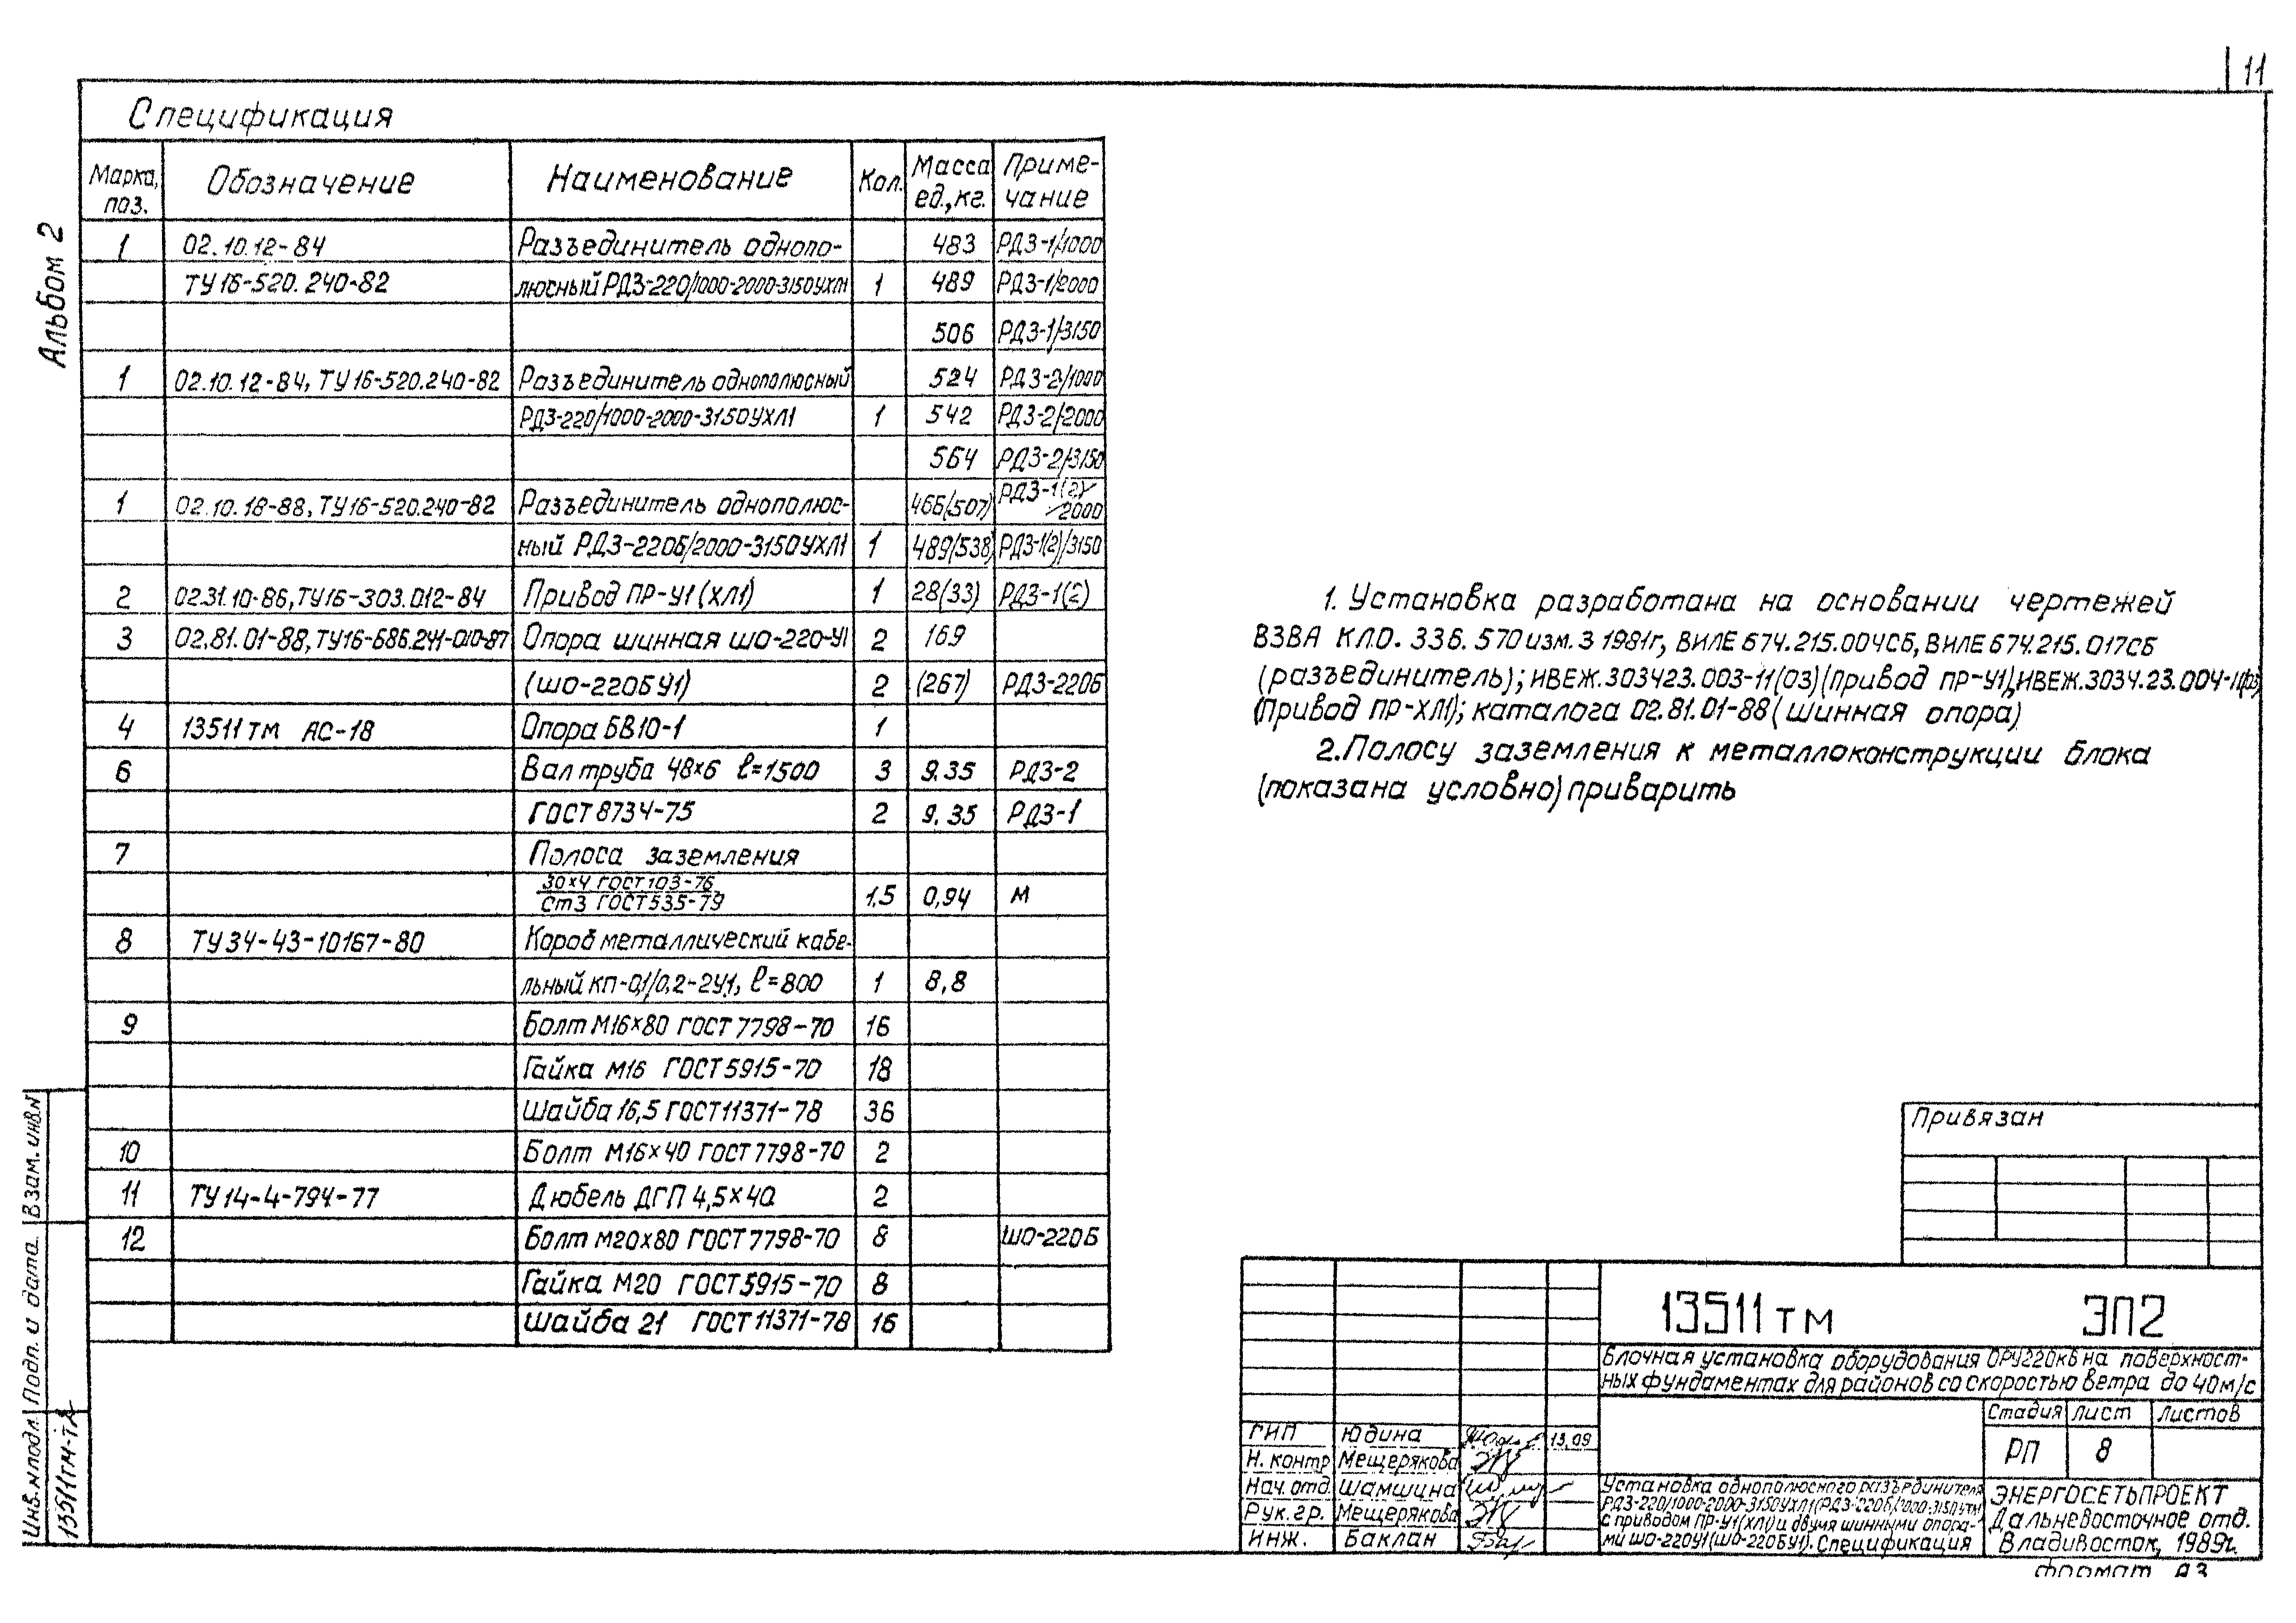 11
Альбом 2
Спецификация
Марка, поз. Обозначение Наименование Кол. Масса ед., кг. Приме-чание
1 02.10.12-84 Разъединитель однопо- 483 РДЗ-1/1000
ТУ16-520.240-82 люсный РДЗ-220/1000-2000-3150УХЛ1 1 489 РДЗ-1/2000
506 РДЗ-1/3150
1 02.10.12-84, ТУ16-520.240-82 Разъединитель однополюсный 524 РДЗ-2/1000
РДЗ-220/1000-2000-3150УХЛ1 1 542 РДЗ-2/2000
564 РДЗ-2/3150
1 02.10.18-88, ТУ16-520.240-82 Разъединитель однополюс- 466(507) РДЗ-1(2)/2000
ный РДЗ-220Б/2000-3150УХЛ1 1 489(538) РДЗ-1(2)/3150
2 02.31.10-86, ТУ16-303.012-84 Привод ПР-У1(ХЛ1) 1 28(33) РДЗ-1(2)
3 02.81.01-88, ТУ16-686.241-010-87 Опора шинная ШО-220-У1 2 169
(ШО-220БУ1) 2 (267) РДЗ-220Б
4 13511тм АС-18 Опора БВ10-1 1
6 Вал труба 48×6 ℓ=1500 3 9.35 РДЗ-2
ГОСТ 8734-75 2 9.35 РДЗ-1
7 Полоса заземления
30×4 ГОСТ 103-76
Ст3 ГОСТ 535-79 1,5 0,94 м
8 ТУ34-43-10167-80 Короб металлический кабе-
льный КП-0,1/0,2-2У1, ℓ=800 1 8,8
9 Болт М16×80 ГОСТ 7798-70 16
Гайка М16 ГОСТ 5915-70 18
Шайба 16,5 ГОСТ 11371-78 36
10 Болт М16×40 ГОСТ 7798-70 2
11 ТУ14-4-794-77 Дюбель ДГП 4,5×40 2
12 Болт М20×80 ГОСТ 7798-70 8 ШО-220Б
Гайка М20 ГОСТ 5915-70 8
Шайба 21 ГОСТ 11371-78 16
1. Установка разработана на основании чертежей
ВЗВА КЛ0.336.570 изм.3 1981г, ВИЛЕ 674.215.004СБ, ВИЛЕ 674.215.017СБ
(разъединитель); ИВЕЖ.303423.003-11(03)(привод ПР-У1), ИВЕЖ.3034.23.004-11(03)
(Привод ПР-ХЛ1); каталога 02.81.01-88 (шинная опора)
2. Полосу заземления к металлоконструкции блока
(показана условно) приварить
Привязан
13511тм ЭП2
Блочная установка оборудования ОРУ220кВ на поверхност-
ных фундаментах для районов со скоростью ветра до 40м/с
Стадия Лист Листов
РП 8
ГИП Юдина 13.09
Н. контр Мещерякова
Нач. отд. Шамшина
Рук. гр. Мещерякова
Инж. Баклан
Установка однополюсного разъединителя
РДЗ-220/1000-2000-3150УХЛ1(РДЗ-220Б/2000-3150УХЛ1)
с приводом ПР-У1(ХЛ1) и двумя шинными опора-
ми ШО-220У1(ШО-220БУ1). Спецификация
ЭНЕРГОСЕТЬПРОЕКТ
Дальневосточное отд.
Владивосток, 1989г.
Формат А3
Инв.№подл. Подп. и дата Взам. инв.№
13511тм-т2